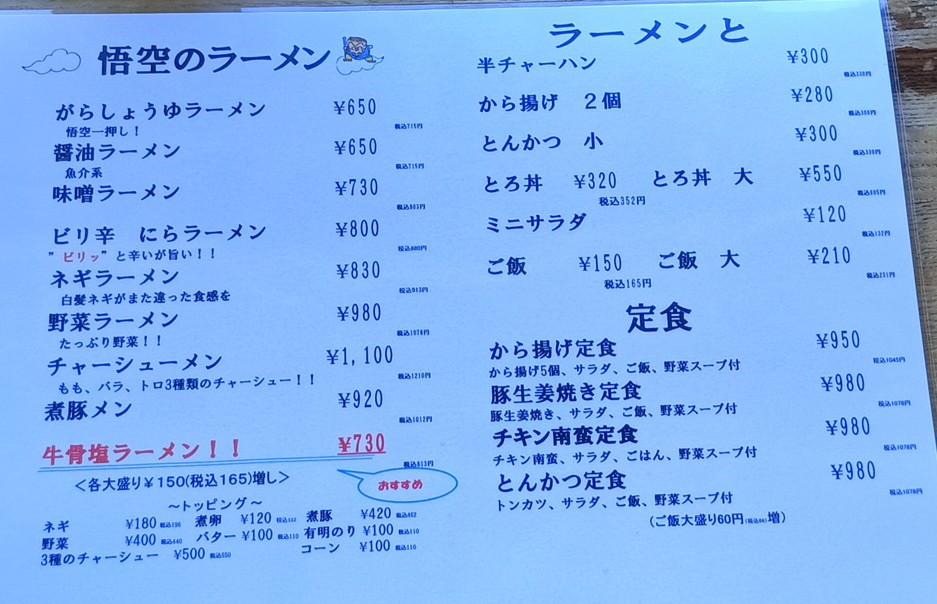 悟空のラーメン
がらしょうゆラーメン ¥650
税込715円
悟空一押し!
醤油ラーメン ¥650
税込715円
魚介系
味噌ラーメン ¥730
税込803円
ビリ辛 にらラーメン ¥800
税込880円
"ビリッ"と辛いが旨い!!
ネギラーメン ¥830
税込913円
白髪ネギがまた違った食感を
野菜ラーメン ¥980
税込1078円
たっぷり野菜!!
チャーシューメン ¥1,100
税込1210円
もも、バラ、トロ3種類のチャーシュー!!
煮豚メン ¥920
税込1012円
牛骨塩ラーメン!! ¥730
税込813円
おすすめ
<各大盛り¥150(税込165)増し>
~トッピング~
ネギ ¥180 煮卵 ¥120 煮豚 ¥420 税込462
野菜 ¥400 税込440 バター ¥100 税込110 有明のり ¥100 税込110
3種のチャーシュー ¥500 税込550 コーン ¥100 税込110
ラーメンと
半チャーハン ¥300
税込330円
から揚げ 2個 ¥280
税込308円
とんかつ 小 ¥300
税込330円
とろ丼 ¥320 とろ丼 大 ¥550
税込352円 税込605円
ミニサラダ ¥120
税込132円
ご飯 ¥150 ご飯 大 ¥210
税込165円 税込231円
定食
から揚げ定食 ¥950
税込1045円
から揚げ5個、サラダ、ご飯、野菜スープ付
豚生姜焼き定食 ¥980
税込1078円
豚生姜焼き、サラダ、ご飯、野菜スープ付
チキン南蛮定食 ¥980
税込1078円
チキン南蛮、サラダ、ごはん、野菜スープ付
とんかつ定食 ¥980
税込1078円
トンカツ、サラダ、ご飯、野菜スープ付
(ご飯大盛り60円(税込66)増)